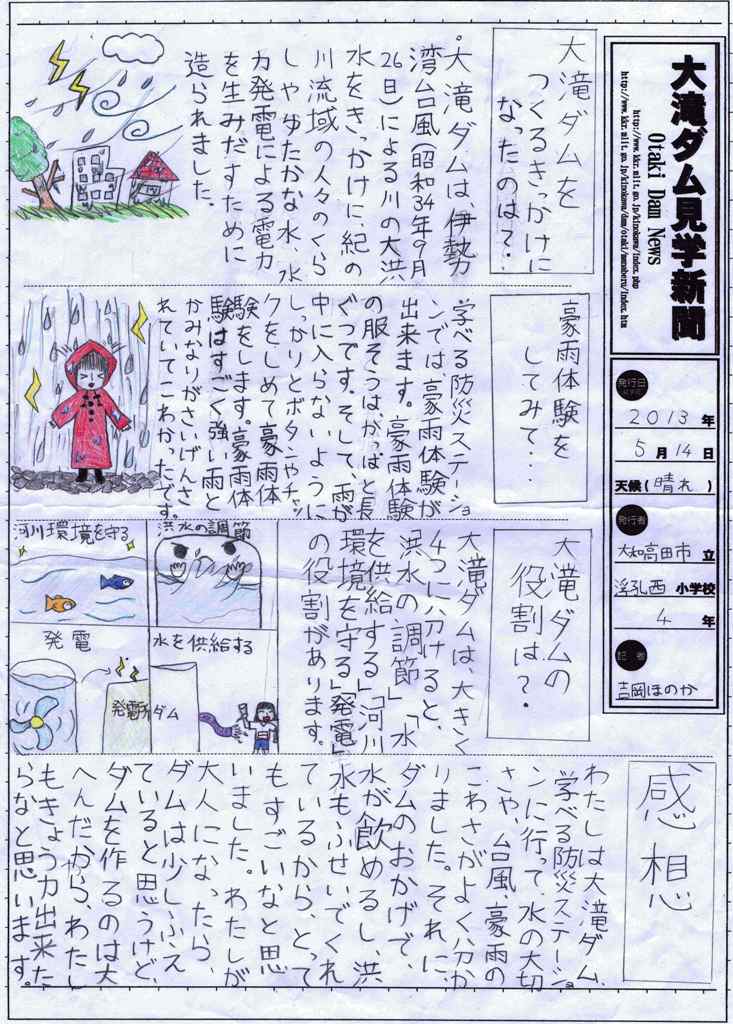 大滝ダム見学新聞
Otaki Dam News
発行日
2013年
5月14日
天候(晴れ)
発行者
大和高田市立
浮孔西小学校
4年
記者
吉岡ほのか
大滝ダムを
つくるきっかけに
なったのは?・・
・大滝ダムは、伊勢
湾台風(昭和34年9月
26日)による川の大洪
水をきっかけに、紀の
川流域の人々のくら
しやゆたかな水、水
力発電による電力
を生みだすために
造られました。
豪雨体験を
してみて・・・
学べる防災ステーショ
ンでは、豪雨体験が
出来ます。豪雨体験
の服そうは、かっぱと長
ぐつです。そして、雨が
中に入らないように
しっかりとボタンやチャッ
クをしめて豪雨体
験をします。豪雨体
験はすごく強い雨と
かみなりがさいげんさ
れていてこわかったです。
大滝ダムの
役割は?・
大滝ダムは、大きく
4つに分けると、
「洪水の調節」「水
を供給する」「河川
環境を守る」「発電」
の役割があります。
洪水の調節
河川環境を守る
水を供給する
ダム
発電
発電所
感想
わたしは大滝ダム、
学べる防災ステーショ
ンに行って、水の大切
さや、台風、豪雨の
こわさがよく分か
りました。それに、
ダムのおかげで、
水が飲めるし、洪
水もふせいでくれ
ているから、とって
もすごいなと思
いました。わたしが
大人になったら、
ダムは少しふえ
ていると思うけど、
ダムを作るのは大
へんだから、わたし
もきょう力出来た
らなと思います。